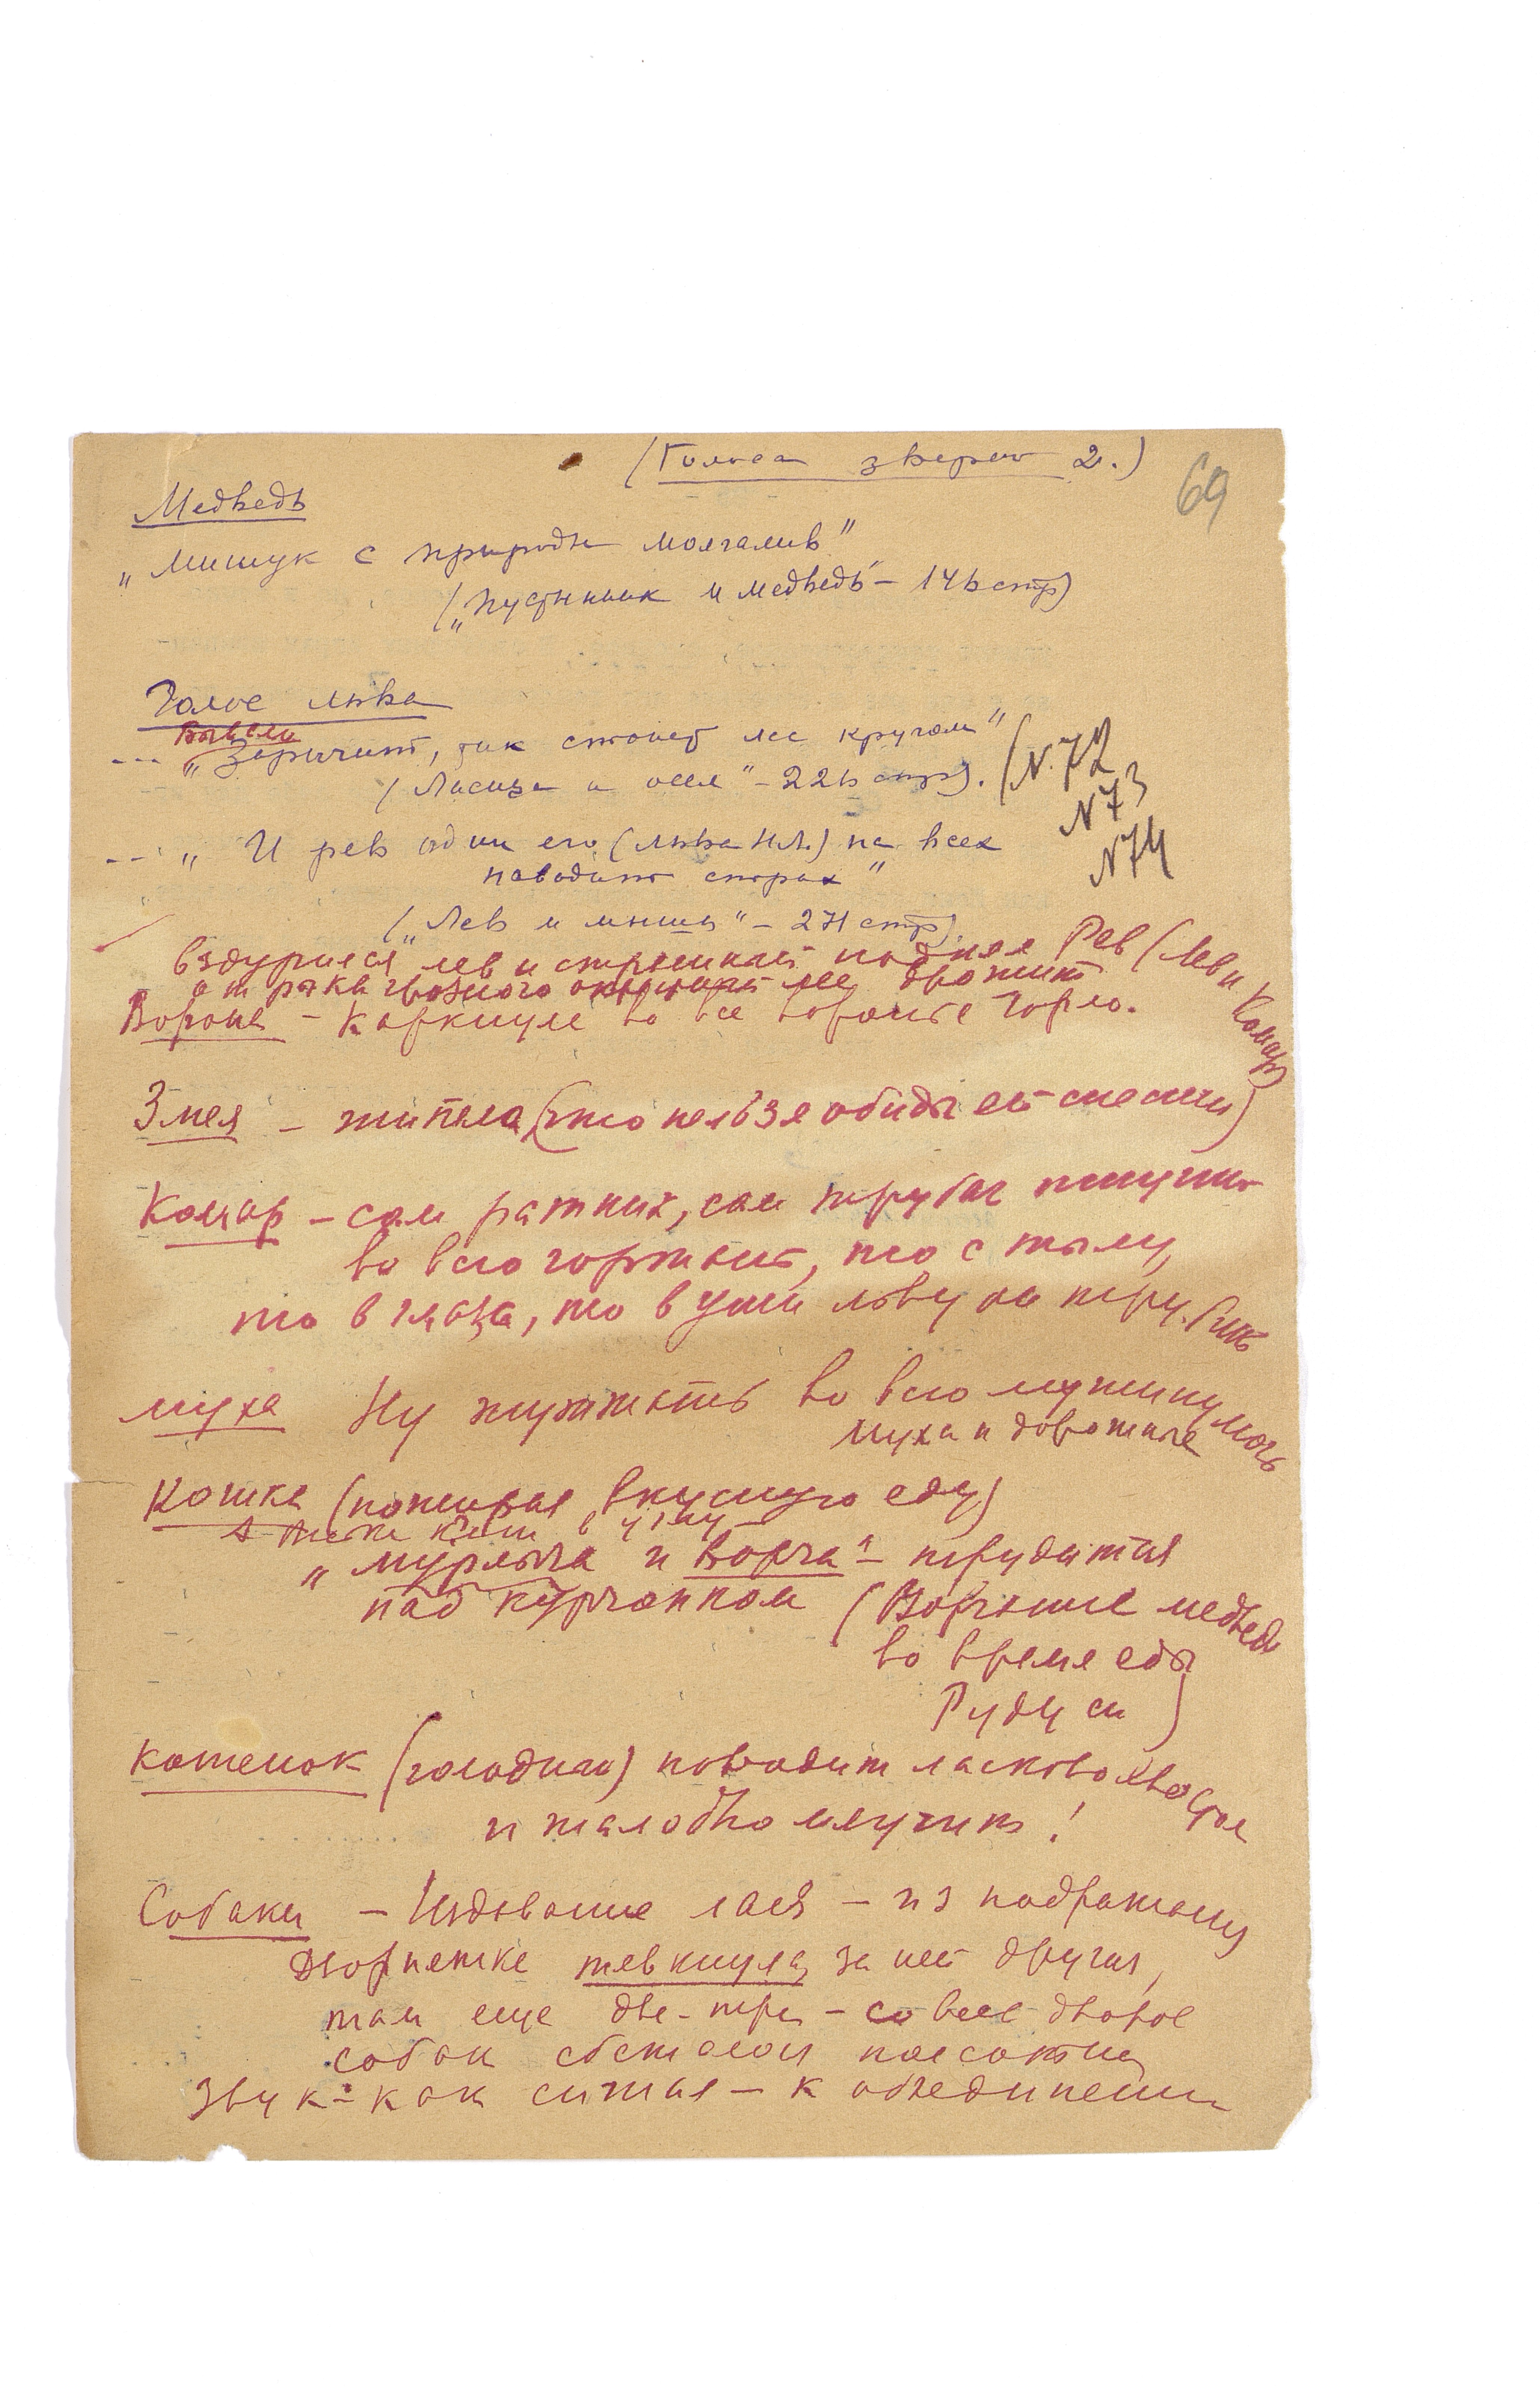 (Голоса зверей 2.)
69
Медведь
„Мишук с природы молчалив"
(„Пустынник и медведь – 146 стр)
Голос льва
--- „Зарычит, так стонет лес кругом"
(Лисица и осел" – 226 стр).
(N. 72
N 73
N 74
--- „И рев один его (льва Н.Л.) на всех
наводит страх"
(„Лев и мышь" – 271 стр)
Вздурился лев и страшный поднял Рев (Лев и Комар)
от рыка грозного окружный лес дрожит
Ворона – Каркнула во все воронье горло.
Змея – шипела (что нельзя обиды ей снести)
Комар – сам ратник, сам трубач пищит
во всю гортань, то с тылу,
то в глаза, то в уши льву он трубит
муха Ну жужжать во всю мушину мочь
муха и дорожные
Кошка (пожирая вкусную еду)
А Васька Кот в углу –
„мурлыча и ворча" – трудится
над курчонком (Ворчание медведя
во время еды
Рудуси)
котенок (голодный) поводит ласково хвостом
и жалобно мяучит!
Собаки – Издавание лая – из подражания
дворняжке тявкнула, за ней другая,
там еще две-три – со всех дворов
собак сбежался
звук – как сигнал – к объединению